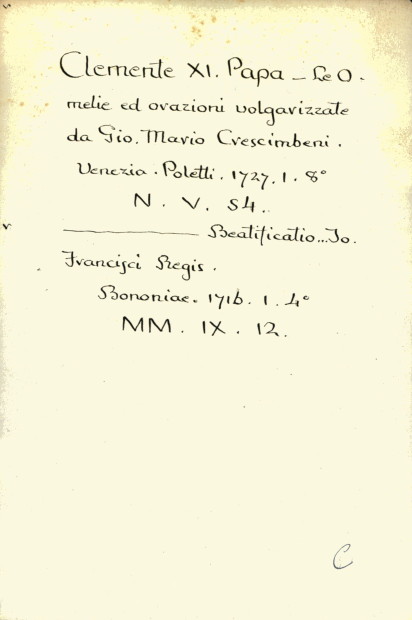 Clemente XI. Papa – Le O-
melie ed orazioni volgarizzate
da Gio. Mario Crescimbeni.
Venezia. Poletti. 1727. 1. 8°
N. V. 84.
——— Beatificatio... Jo.
Francisci Regis.
Bononiae. 1716. 1. 4°
MM. IX. 12.
C